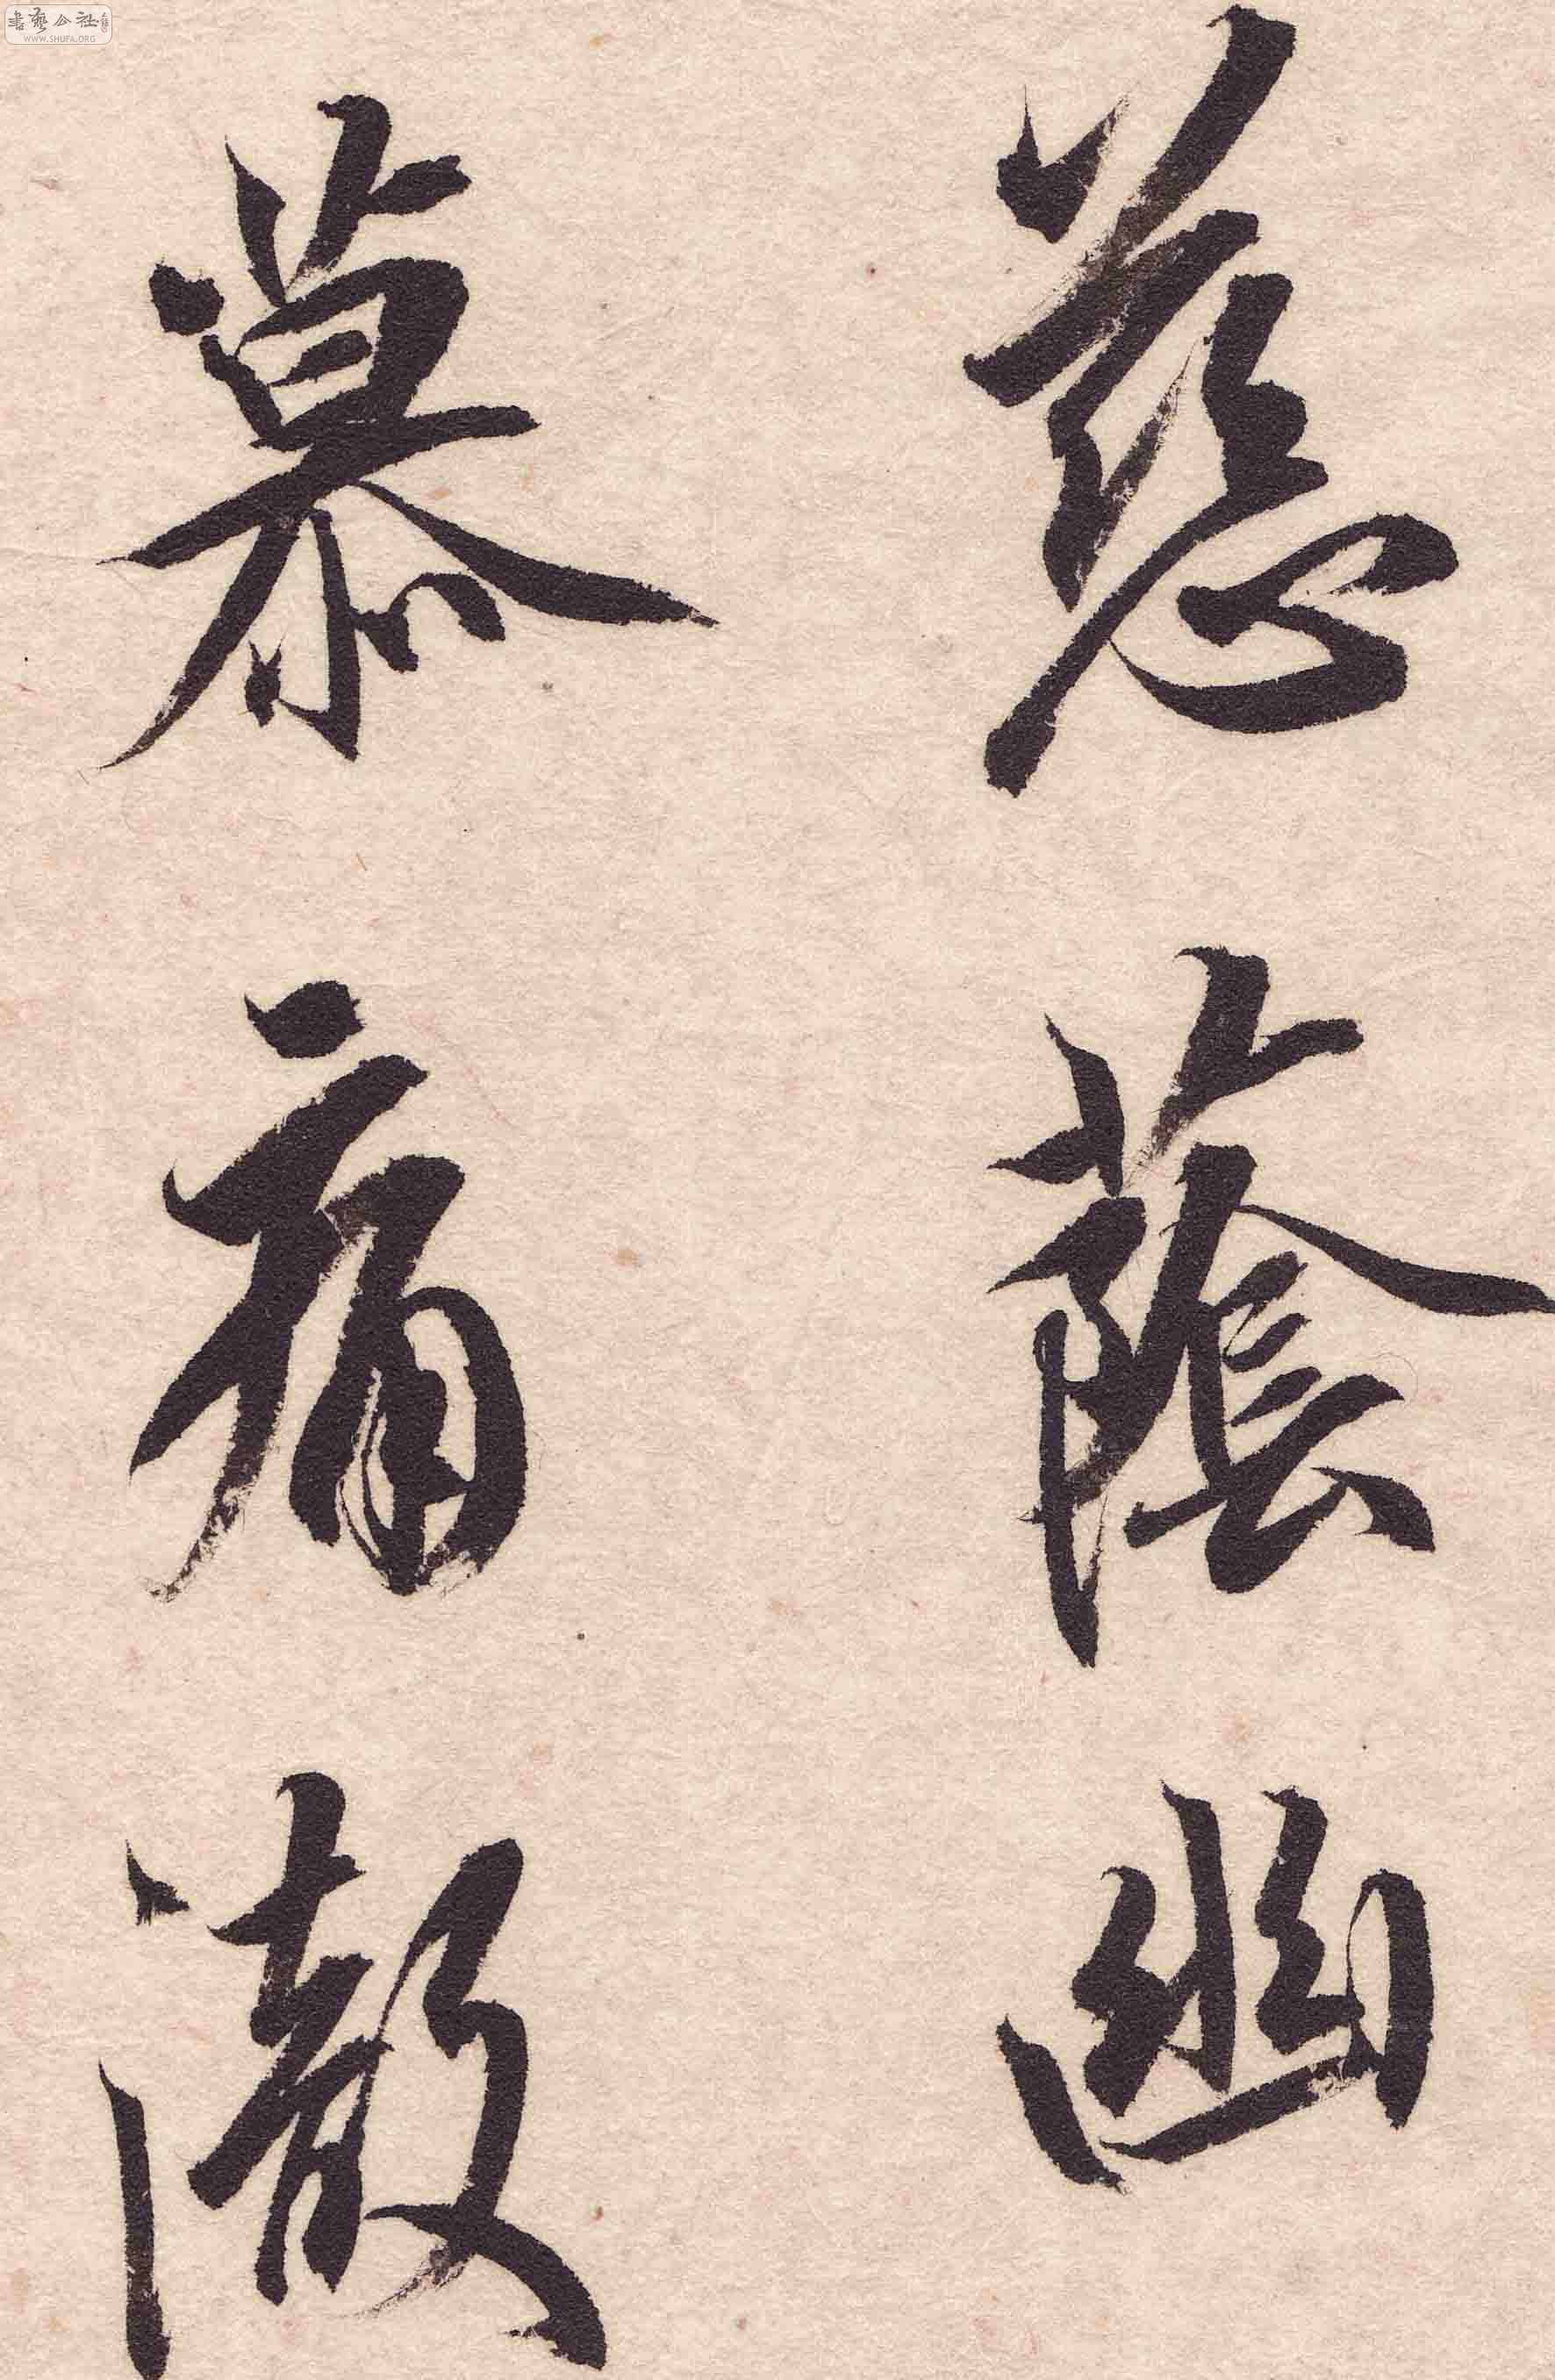 慈蔭幽
慕痛澈
書藝公社
WWW.SHUFA.ORG